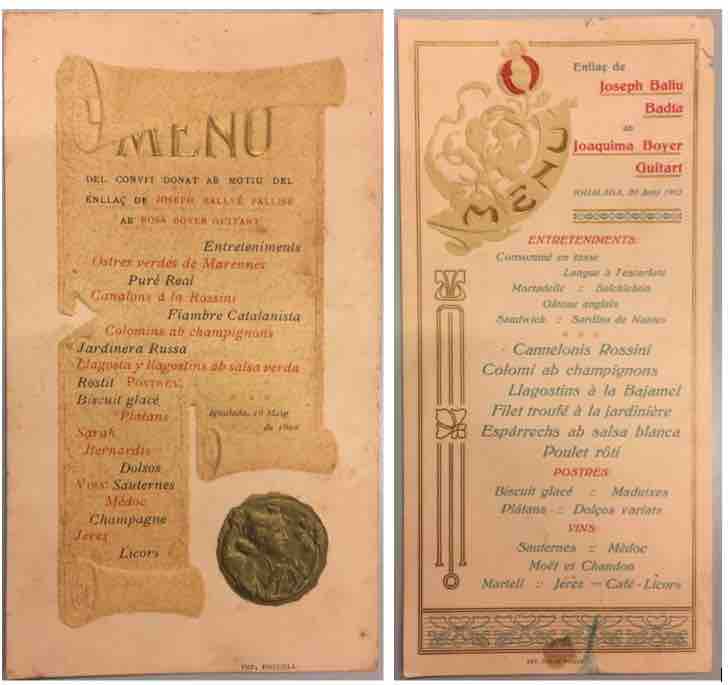 MENU
DEL CONVIT DONAT AB MOTIU DEL
ENLLAÇ DE JOSEPH BALLVÉ PALLISÉ
AB ROSA BOYER GUITART
Entreteniments
Ostres verdes de Marennes
Puré Real
Canalons á la Rossini
Fiambre Catalanista
Colomins ab champignons
Jardinera Russa
Llagosta y llagostins ab salsa verda
Rostit POSTRES:
Biscuit glacé
Plátans
Sarah
Bernardis
Dolsos
VINS: Sauternes
Médoc
Champagne
Jerez
Licors
Igualada, 10 Maig
de
IMP.
MENU
Enllaç de
Joseph Baliu
Badia
ab
Joaquima Boyer
Guitart
IGUALADA,
ENTRETENIMENTS:
Consommé en tasse
Langue à l'escarlate
Mortadelle :: Salchichón
Gâteau anglais
Sandwick :: Sardins de Nantes
Cannelonis Rossini
Colomi ab champignons
Llagostins à la Bajamel
Filet troufé à la jardinière
Espárrechs ab salsa blanca
Poulet rôti
POSTRES:
Biscuit glacé :: Maduixes
Plátans :: Dolços variats
VINS:
Sauternes :: Mèdoc
Moët et Chandon
Martell :: Jerès — Café - Licors